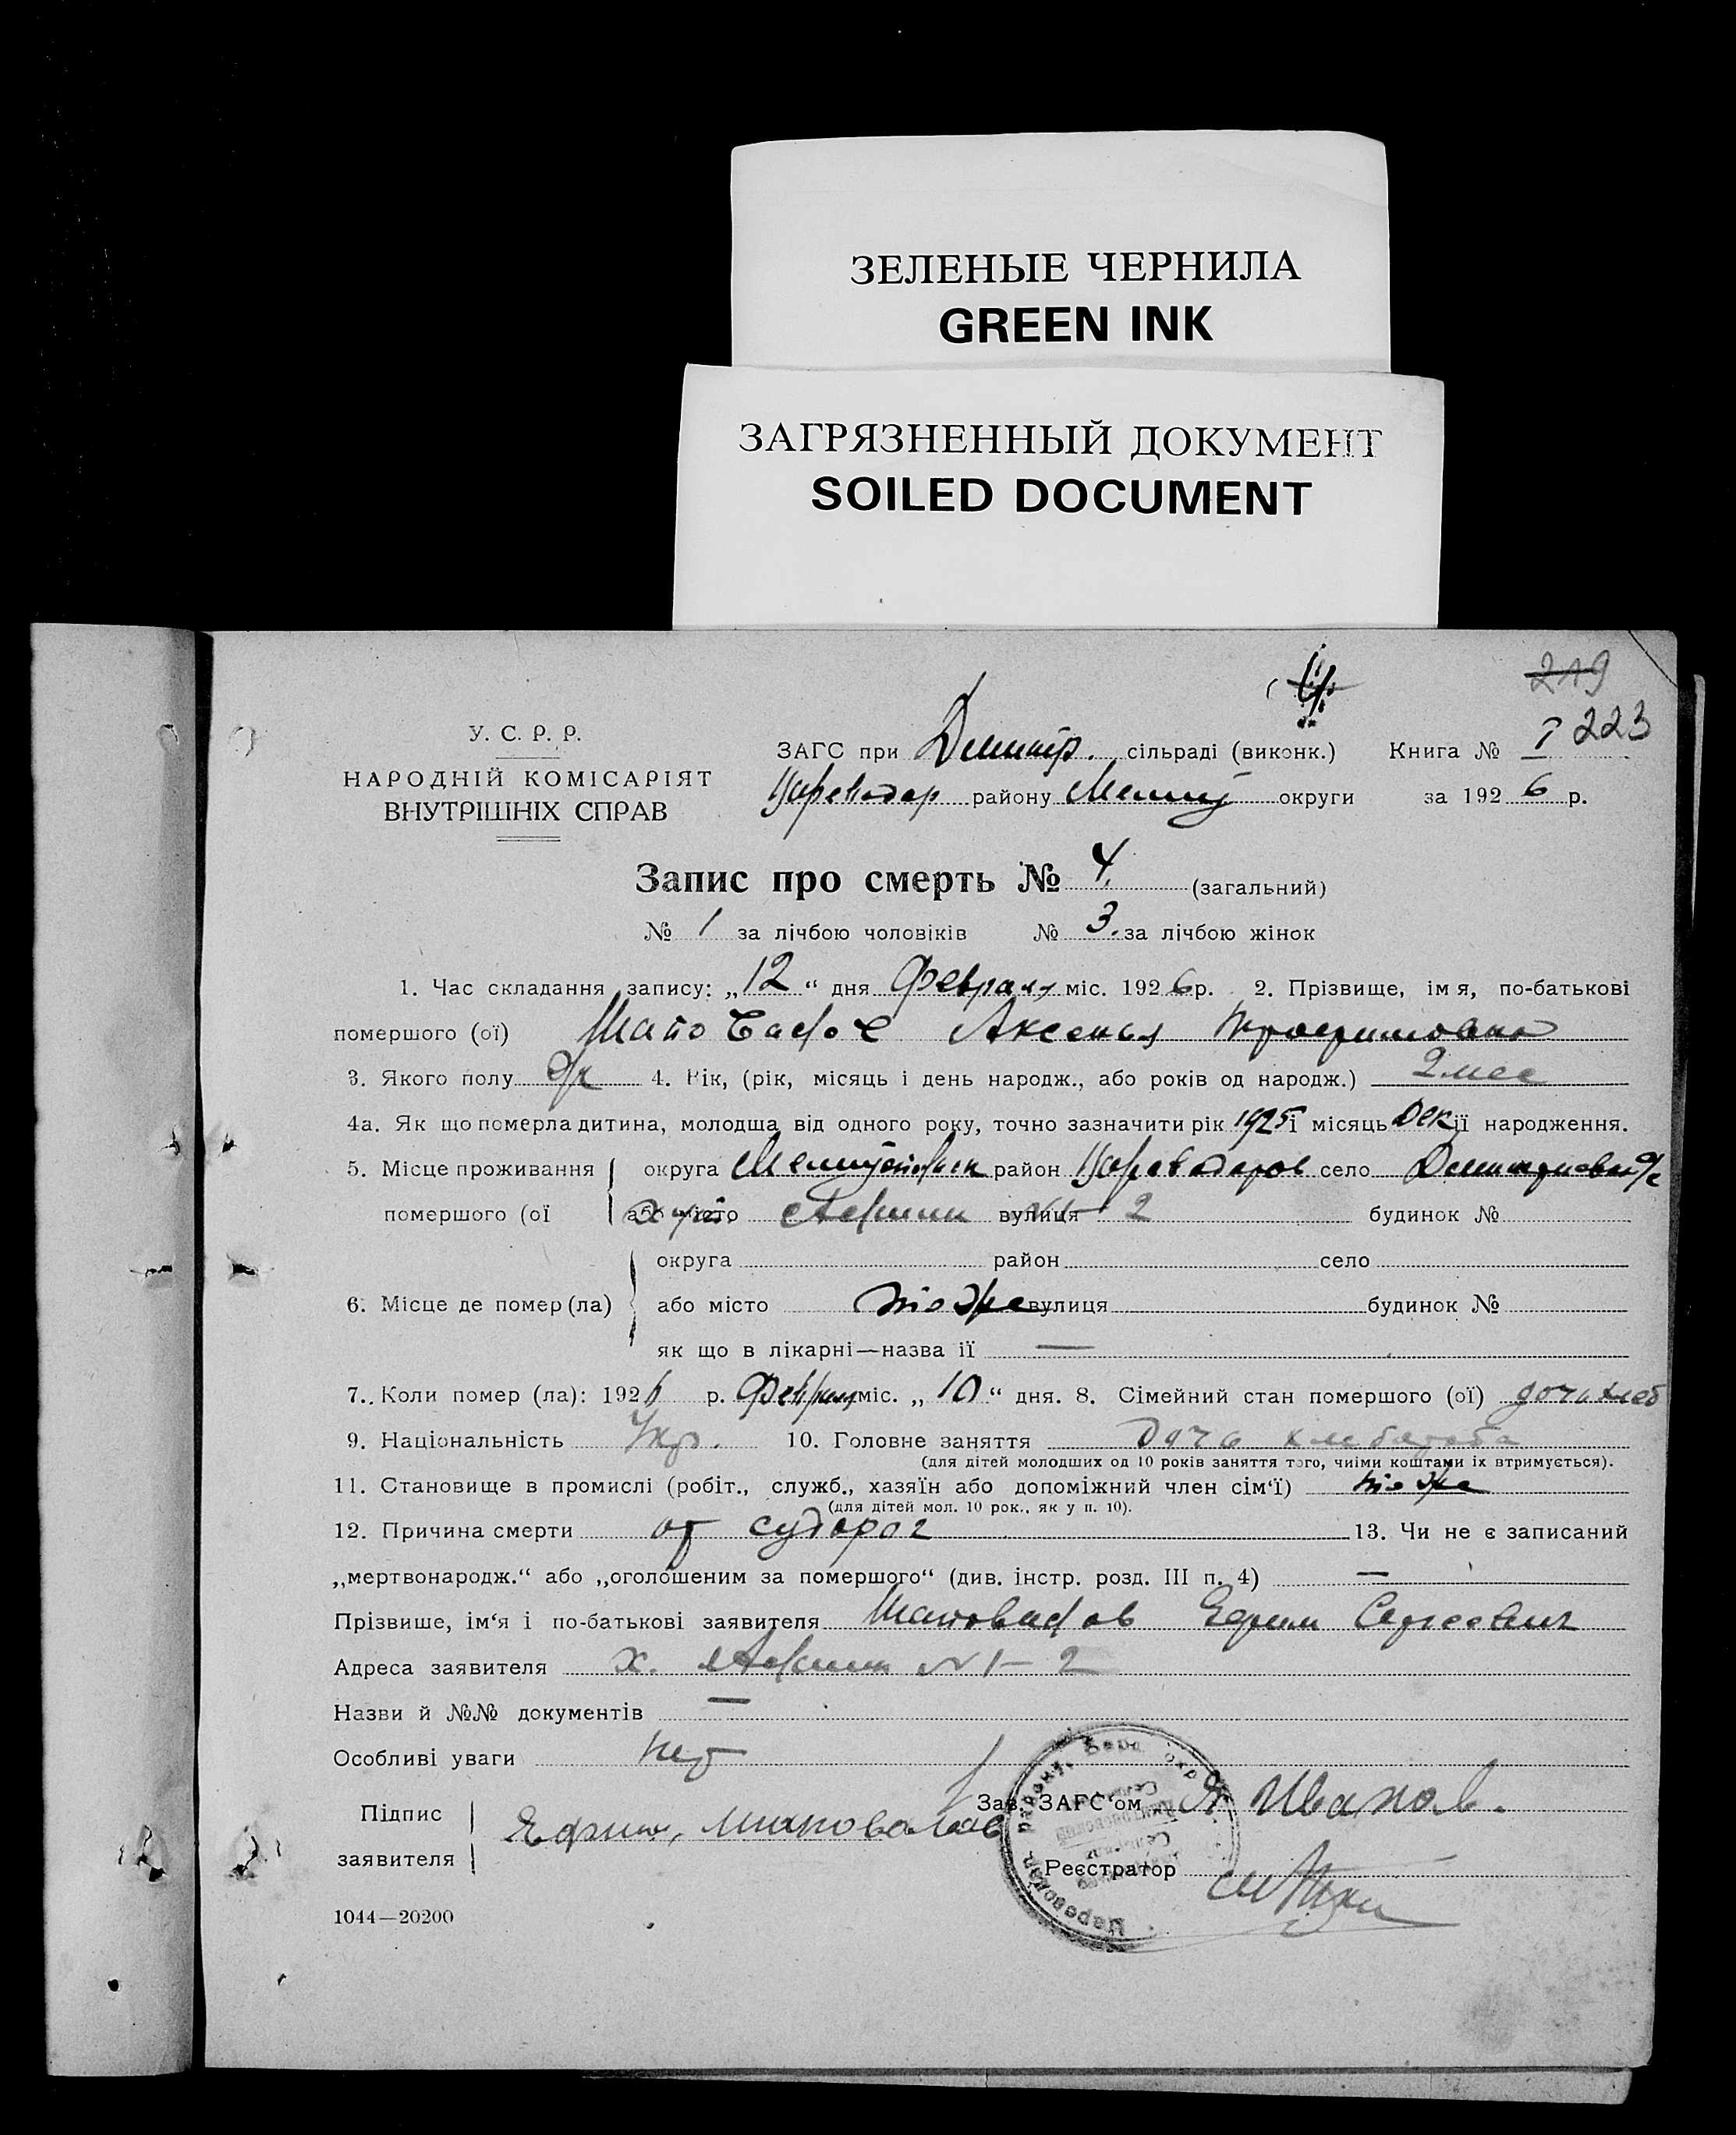 ЗЕЛЕНЫЕ ЧЕРНИЛА
GREEN INK
ЗАГРЯЗНЕННЫЙ ДОКУМЕНТ
SOILED DOCUMENT
219
223
У. С. Р. Р.
НАРОДНІЙ КОМІСАРІЯТ
ВНУТРІШНІХ СПРАВ
ЗАГС при Димитр. сільраді (виконк.) Книга № I
району округи за 1926 р.
Запис про смерть № 4. (загальний)
№ 1 за лічбою чоловіків № 3. за лічбою жінок
1. Час складання запису: „12“ дня Февраля міс. 1926 р. 2. Прізвище, ім я, по-батькові
помершого (ої) Аксенья
3. Якого полу 4. Рік, (рік, місяць і день народж., або років од народж.) 2 мес
4а. Як що померла дитина, молодша від одного року, точно зазначити рік 1925 і місяць Дек її народження.
5. Місце проживання округа район село
помершого (ої або місто вулиця 2 будинок №
округа район село
6. Місце де помер (ла) або місто тоже вулиця будинок №
як що в лікарні—назва ії —
7. Коли помер (ла): 1926 р. Февраля міс. „10“ дня. 8. Сімейний стан помершого (ої) дочь хлеб
9. Національність Укр. 10. Головне заняття Дочь хлебороба
(для дітей молодших од 10 років заняття того, чиіми коштами іх втримується).
11. Становище в промислі (робіт., служб., хазяїн або допоміжний член сім‘ї) тоже
(для дітей мол. 10 рок., як у п. 10).
12. Причина смерти от судорог 13. Чи не є записаний
„мертвонародж.“ або „оголошеним за помершого“ (див. інстр. розд. III п. 4) —
Прізвише, ім‘я і по-батькові заявителя Шаповалов Ефрим Сергеевич
Адреса заявителя х. № 1 — 2
Назви й №№ документів —
Особливі уваги Нет
Підпис
заявителя Ефрим, Шаповалов
Зав. ЗАГС‘ом Иванов.
Реєстратор
1044—20200